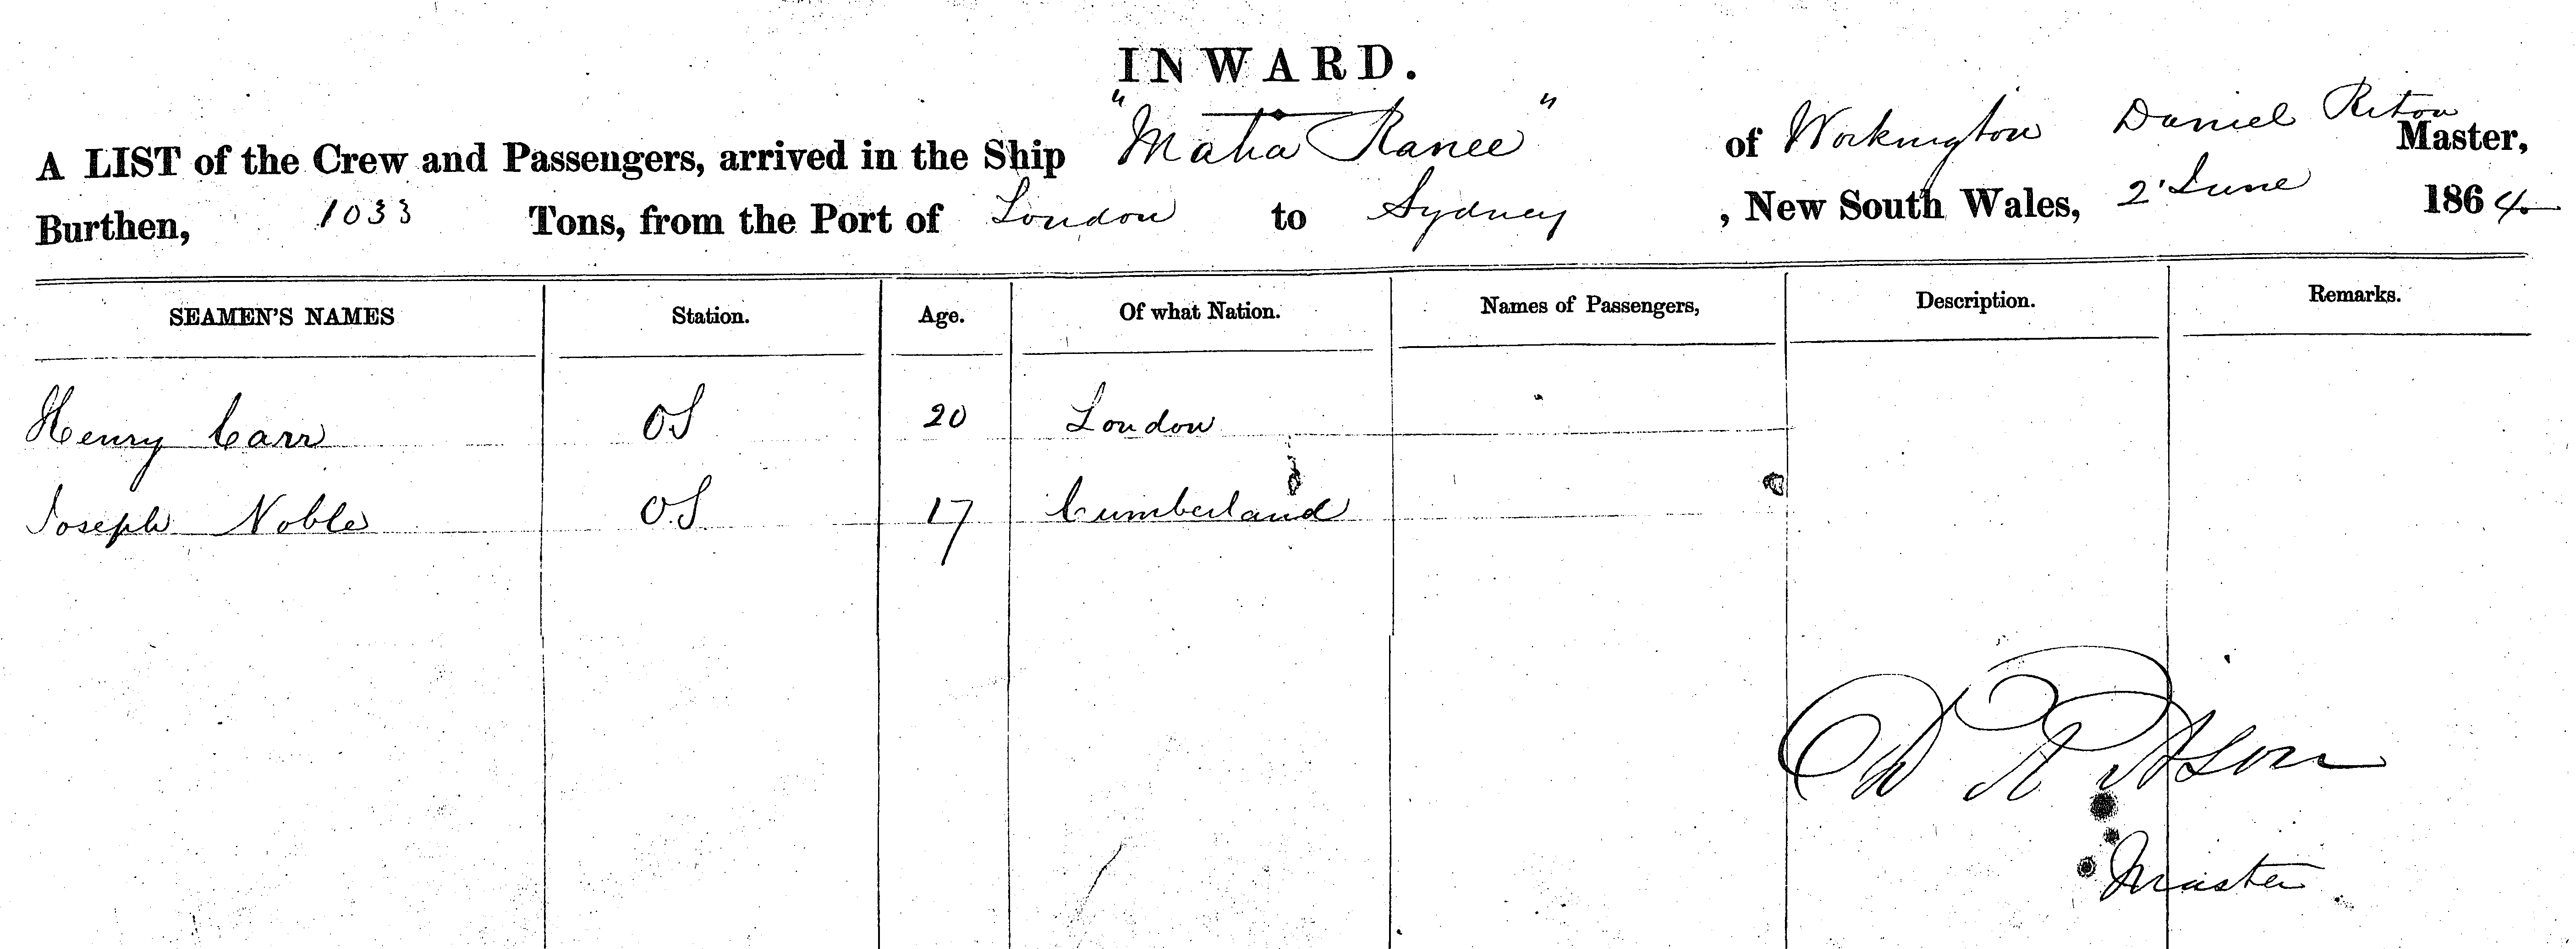 INWARD.
A LIST of the Crew and Passengers, arrived in the Ship "Maha Ranee" of Workington Daniel Ritson Master,
Burthen, 1033 Tons, from the Port of London to Sydney, New South Wales, 2' June 1864
SEAMEN'S NAMES Station. Age. Of what Nation. Names of Passengers, Description. Remarks.
Henry Carr OS 20 London
Joseph Noble OS 17 Cumberland
D Ritson
Master